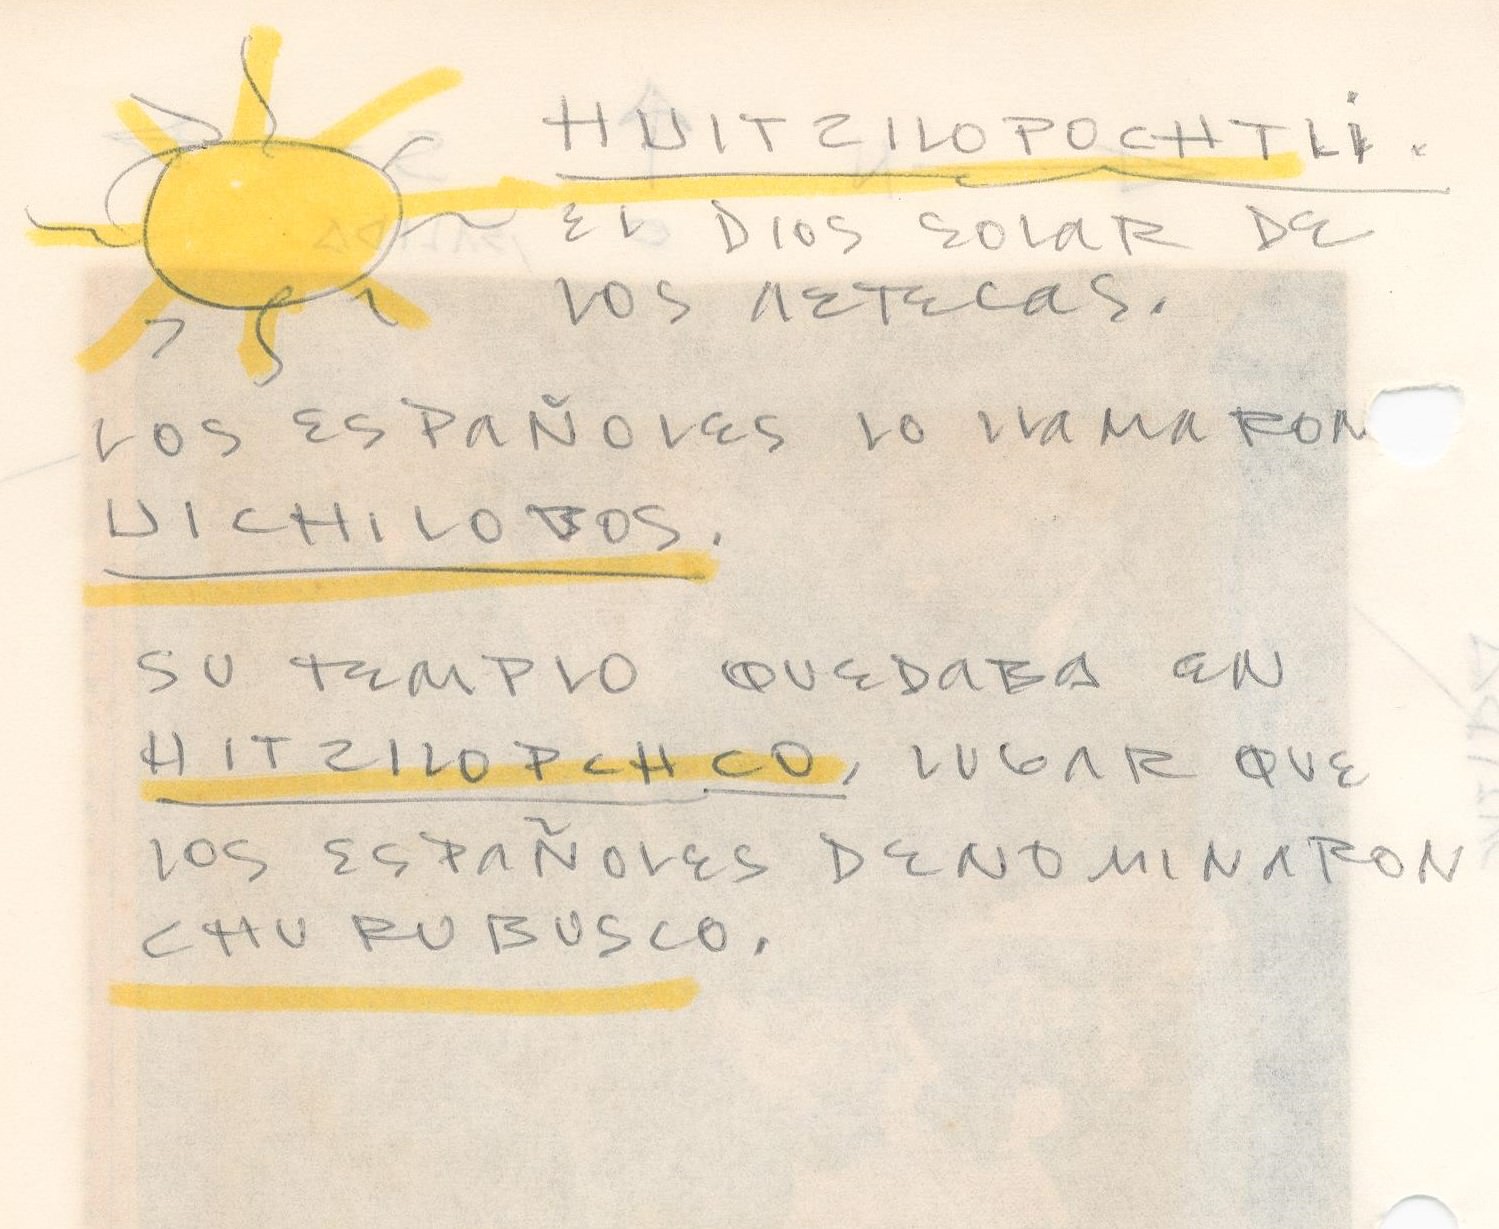 HUITZILOPOCHTLI.
EL DIOS SOLAR DE
LOS AZTECAS.
LOS ESPAÑOLES LO LLAMARON
UICHILOBOS.
SU TEMPLO QUEDABA EN
HITZILOPCHCO, LUGAR QUE
LOS ESPAÑOLES DENOMINARON
CHURUBUSCO.